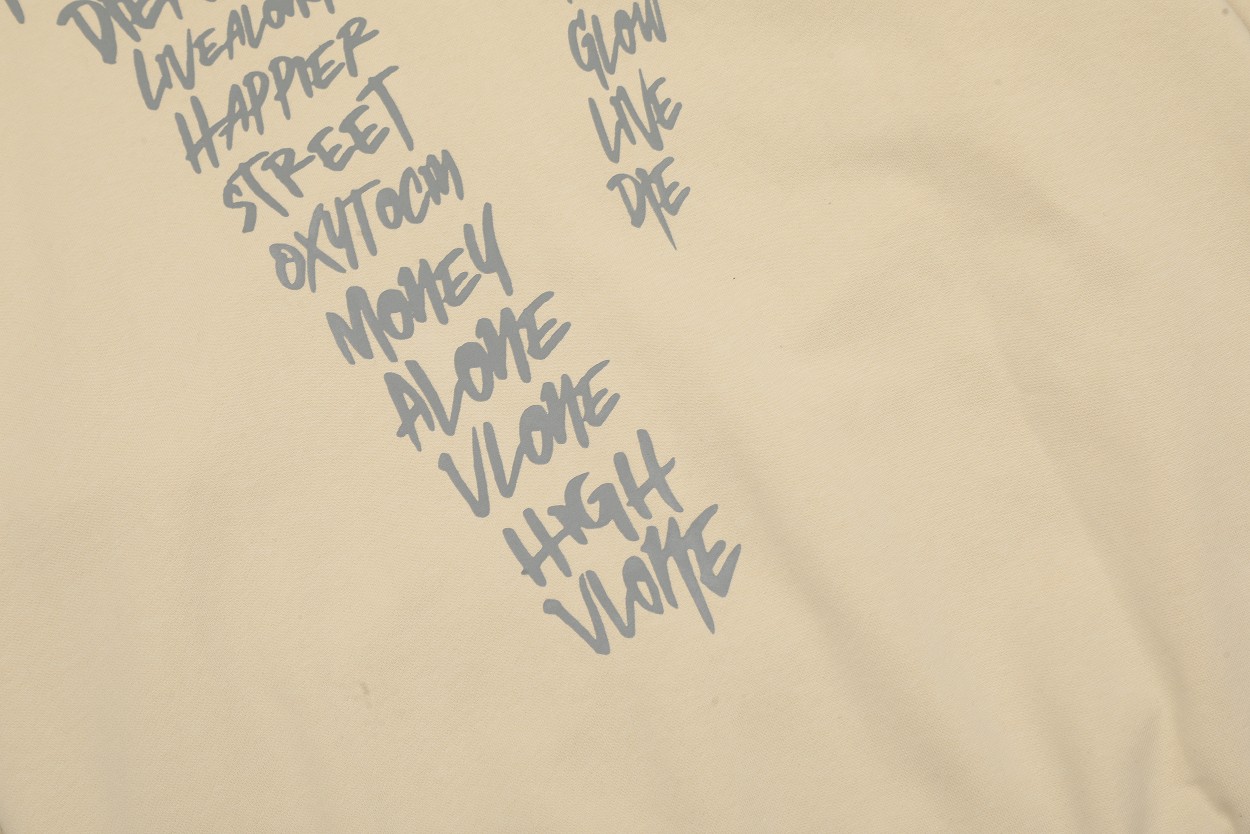 LIVEALONE
HAPPIER
STREET
OXYTOCIN
MONEY
ALONE
VLONE
HIGH
VLONE
GLOW
LIVE
DIE